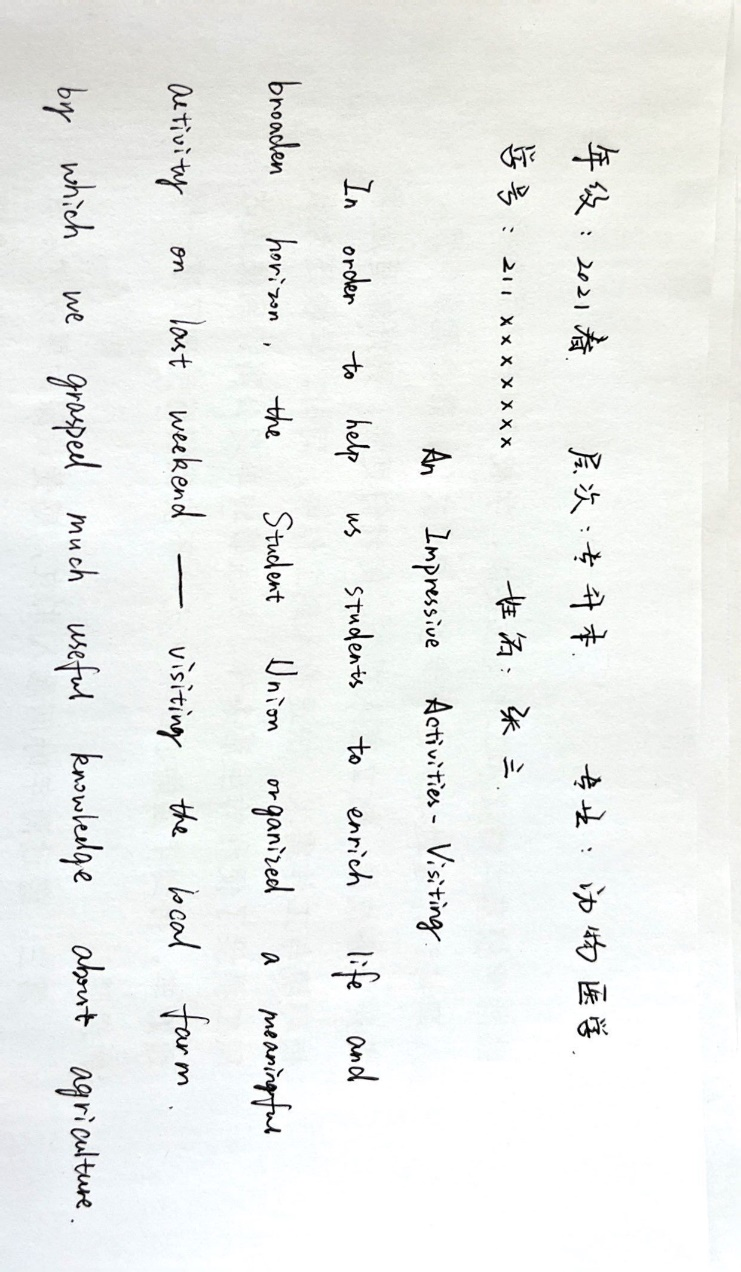 年级：2021春 层次：专升本 专业：动物医学.
学号：211xxxxxxxx 姓名：张三.
An Impressive Activities-Visiting
In order to help us students to enrich life and
broaden horizon, the Student Union organized a meaningful
activity on last weekend — visiting the local farm.
by which we grasped much useful knowledge about agriculture.